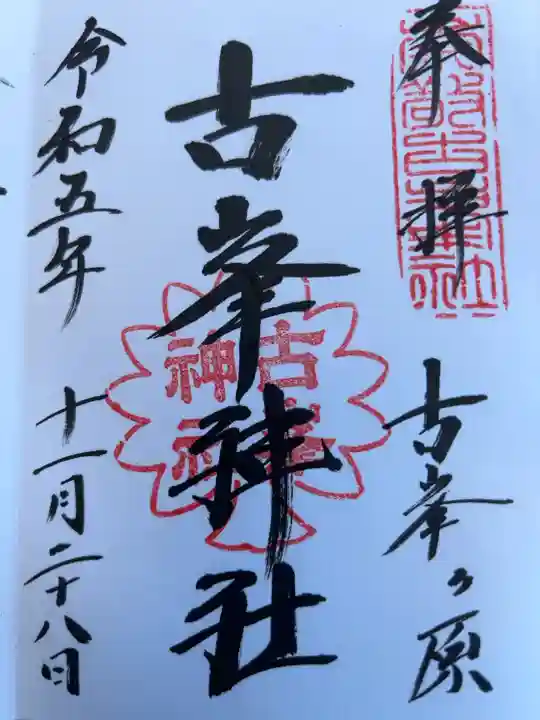 奉拝
古峯ヶ原
古峯神社
古峯神社
令和五年
十一月二十八日